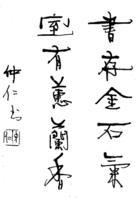 書存金石氣
室有蕙蘭香
仲仁书